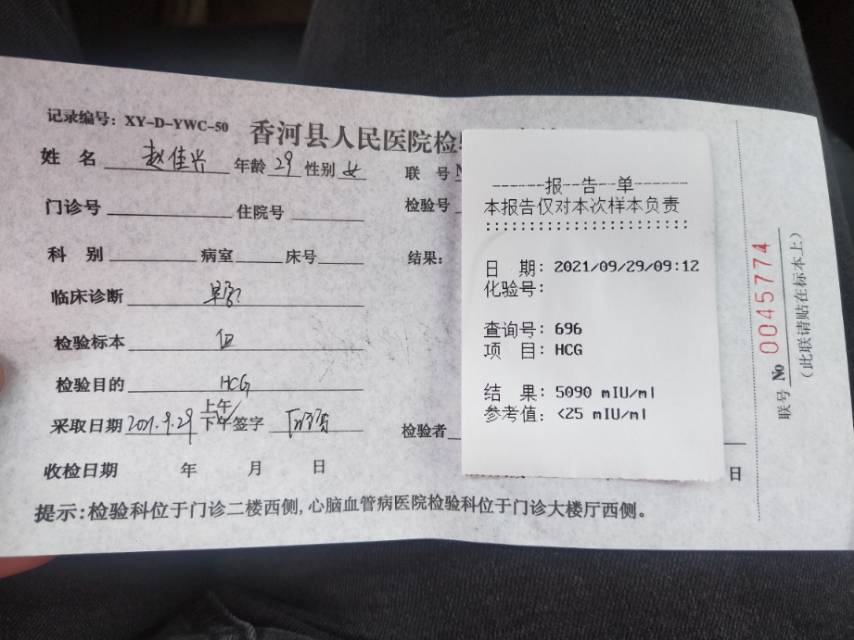 记录编号：XY-D-YWC-50
香河县人民医院检
姓 名 赵佳兴 年龄 29 性别 女 联 号
门诊号 住院号 检验号
科 别 病室 床号 结果：
临床诊断 早孕?
检验标本 血
检验目的 HCG
采取日期 2021.9.29 上午/下午 签字
检验者
收检日期 年 月 日
日
提示：检验科位于门诊二楼西侧，心脑血管病医院检验科位于门诊大楼厅西侧。
------报--告--单------
本报告仅对本次样本负责
::::::::::::::::::::::
日 期：2021/09/29/09:12
化验号：
查询号：696
项 目：HCG
结 果：5090 mIU/ml
参考值：<25 mIU/ml
联号 № 0045774
（此联请贴在标本上）